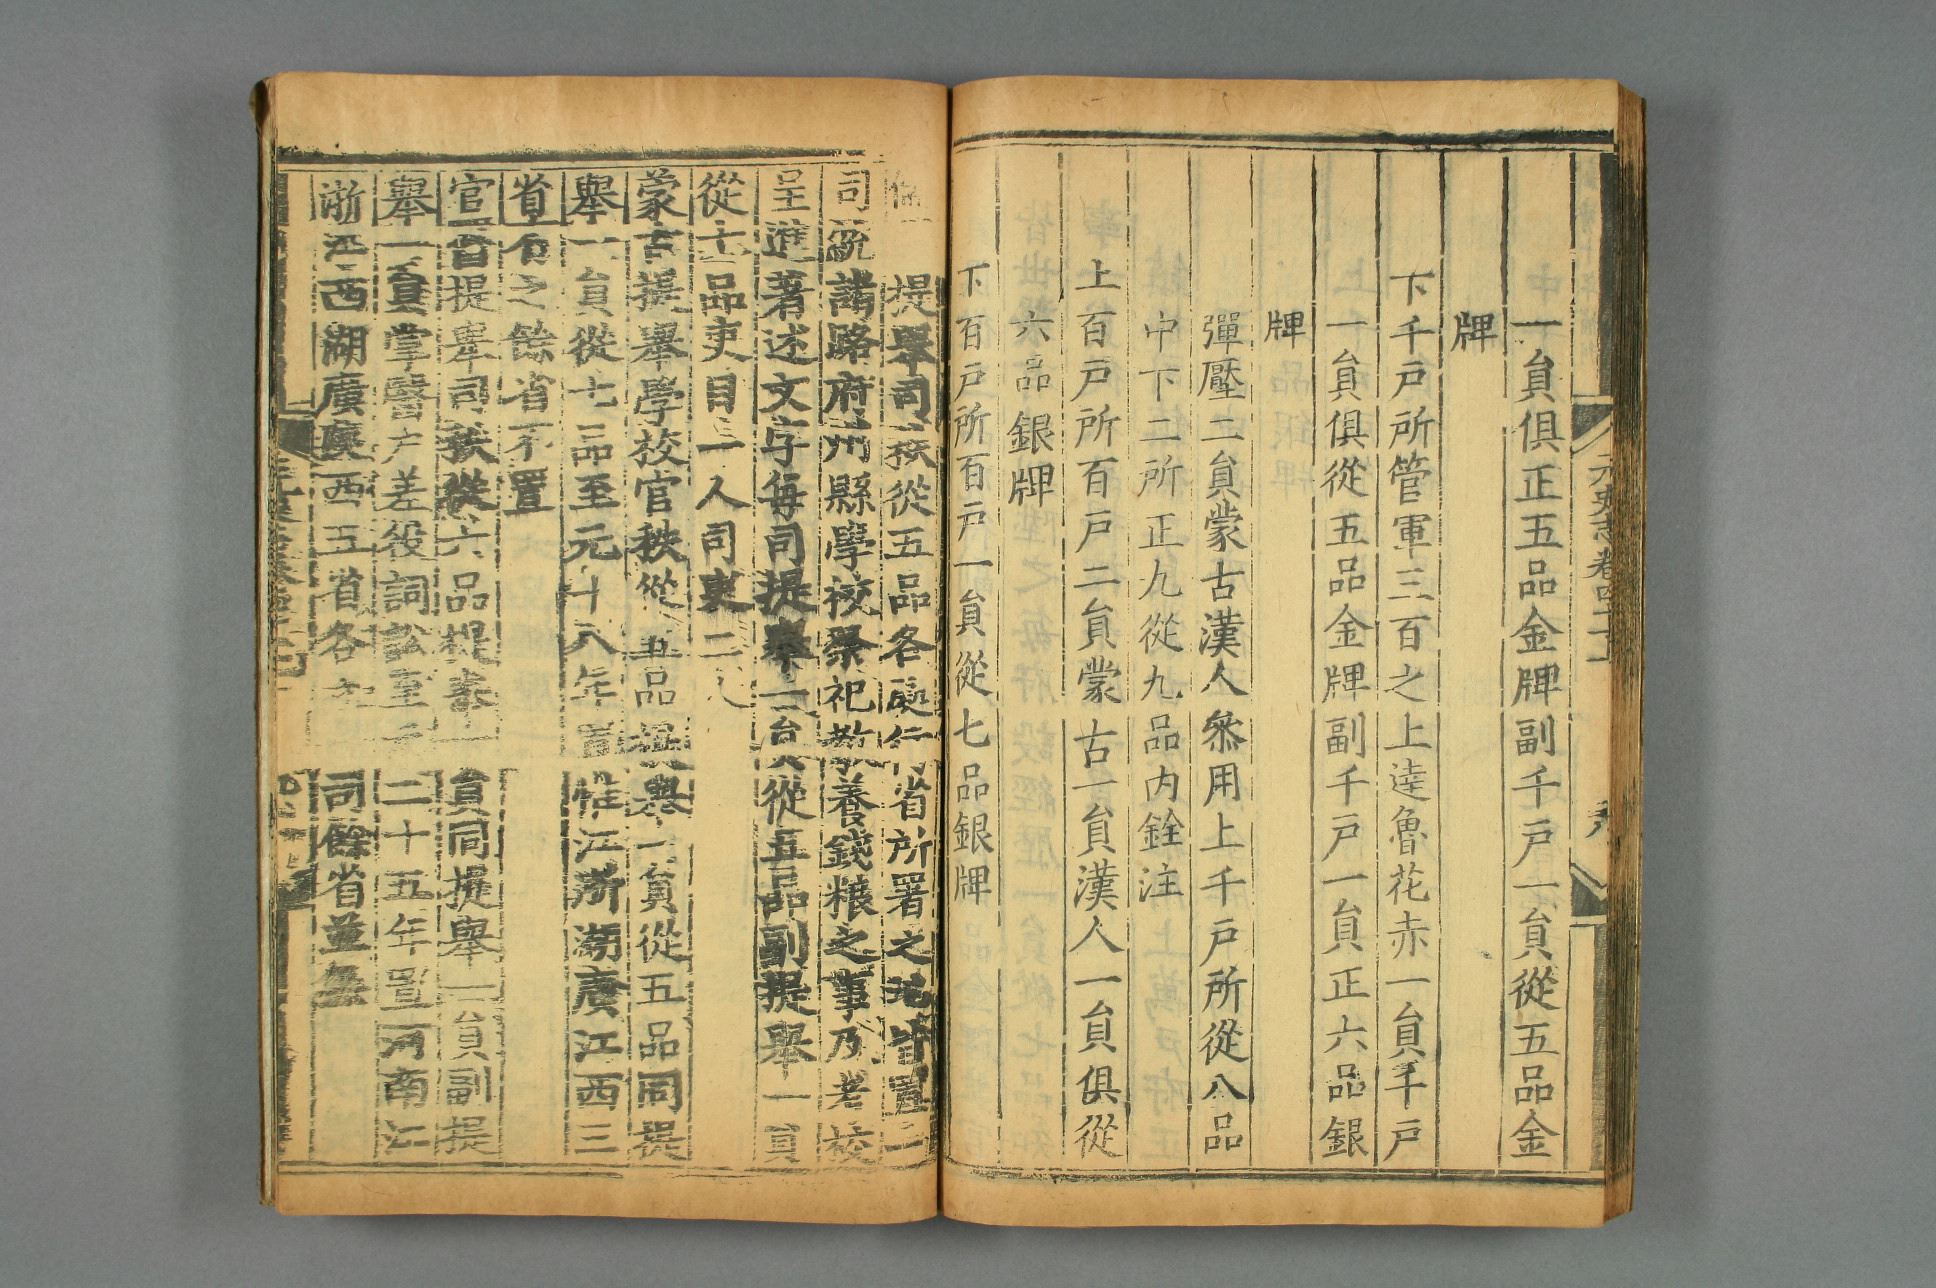 元史志卷四十一
中一員俱正五品金牌副千戶一員從五品金
牌
下千戶所管軍三百之上達魯花赤一員千戶
上一員俱從五品金牌副千戶一員正六品銀
牌
彈壓二員蒙古漢人叅用上千戶所從八品
中下二所正九從九品內銓注
上百戶所百戶二員蒙古一員漢人一員俱從
六品銀牌
下百戶所百戶一員從七品銀牌
儒
提舉司秩從五品各處行省所署之地皆置一
司統諸路府州縣學校祭祀教養錢粮之事及考校
呈進著述文字每司提舉一員從五品副提舉一員
從七品吏目一人司吏二人
蒙古提舉學校官秩從五品提舉一員從五品同提
舉一員從七品至元十八年置惟江浙湖廣江西三
省有之餘省不置
官醫提舉司秩從六品提舉一員同提舉一員副提
舉一員掌醫户差役詞訟至元二十五年置河南江
浙江西湖廣陜西五省各立一司餘省並無